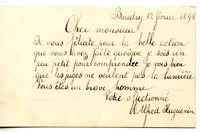 Boudry 12 février 1898
Cher monsieur
Je vous félicite pour la belle action
que vous avez faite quoique je sois un
peu petit pour comprendre je vois bien
que les juges ne veulent pas de la lumière
Vous êtes un brave homme
Votre affectionné
Alfred Huguenin